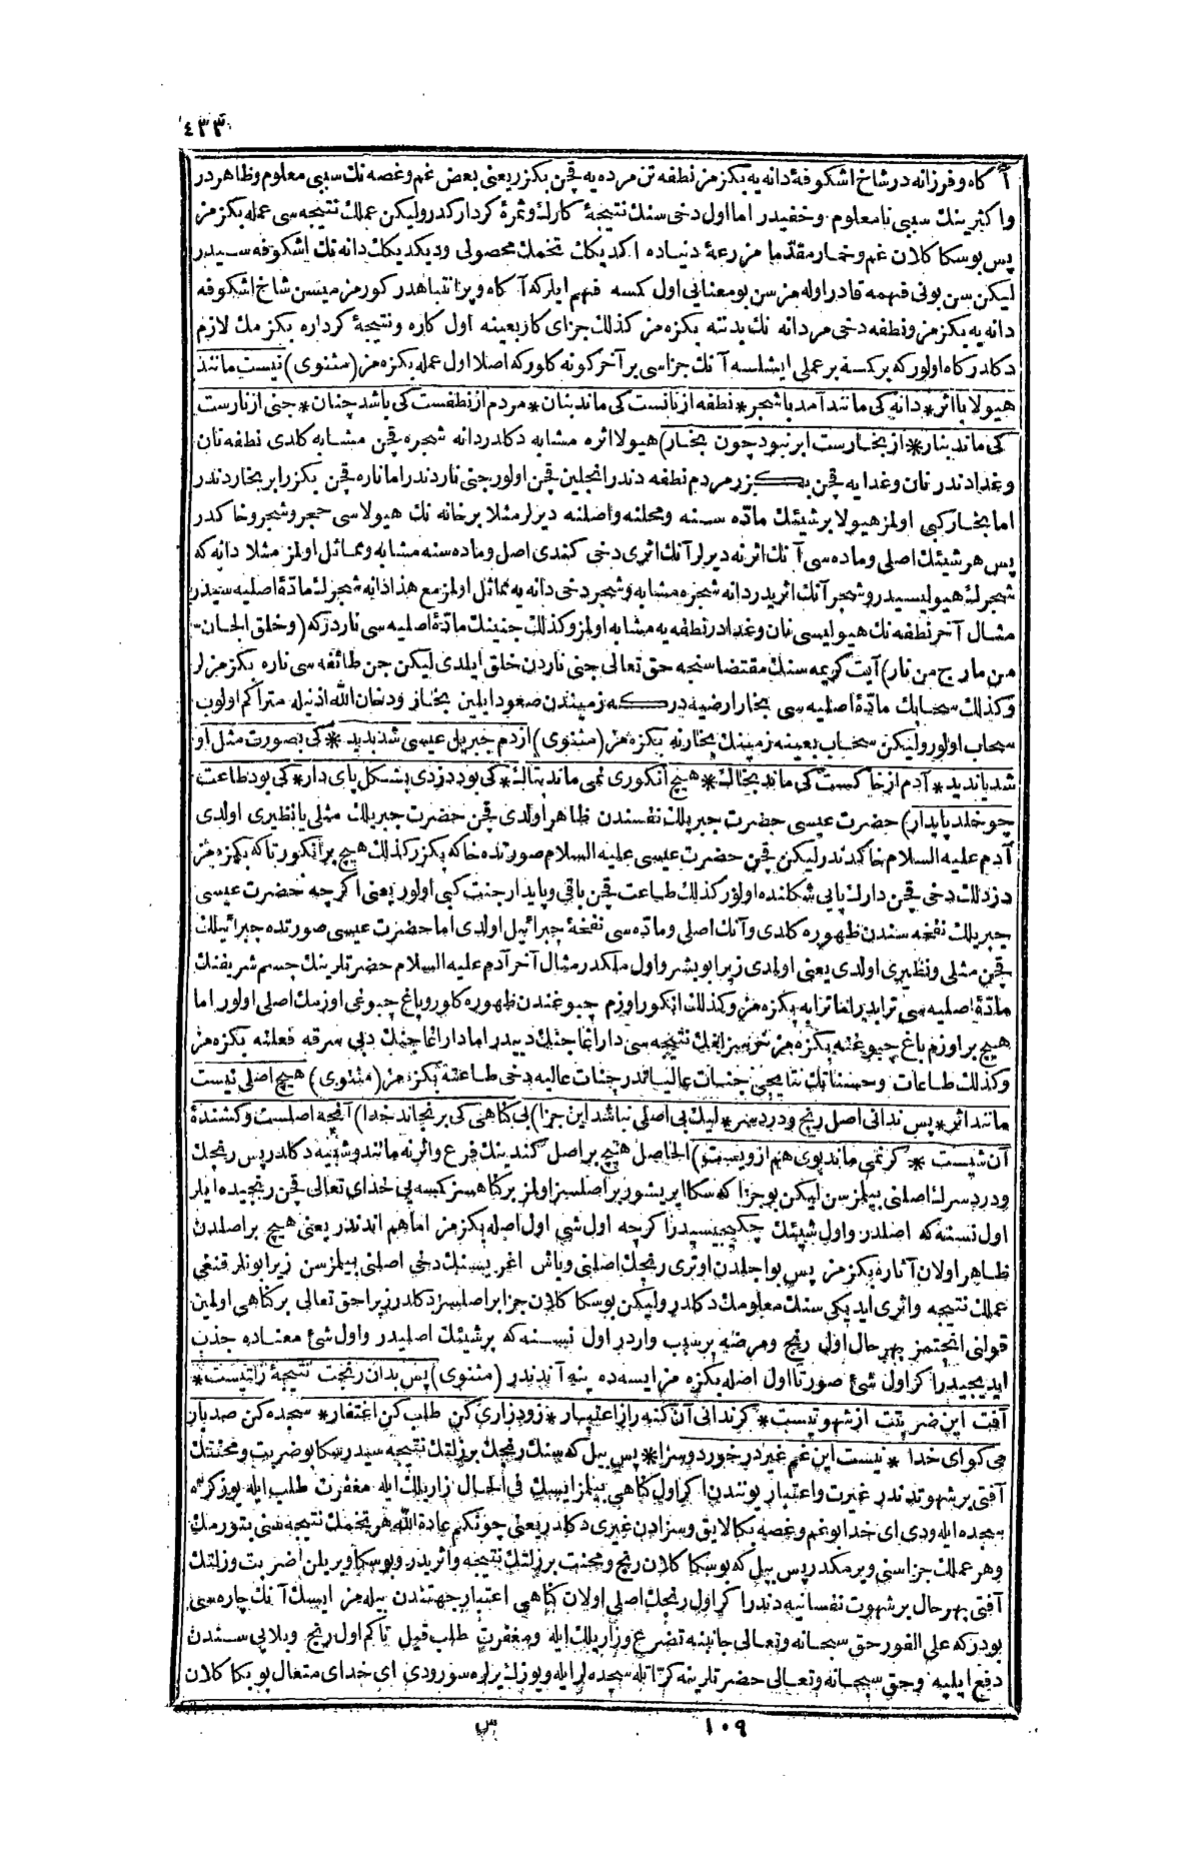 ٤٣٣
آكاه وفرزانه در شاخ اشكوفۀ دانه يه بكزمز نطفه تن مرده يه قچن بكزر يعنى بعض غم وغصه نك سببى معلوم وظاهر در
واكثرينك سببى نامعلوم وخفيدر اما اول دخى سنك نتيجۀ كارك وثمرۀ كرداركدر وليكن عملك نتيجه سى عمله بكزمز
پس بو سكا كلان غم وخمار مقدما مزرعۀ دنياده اكديكك تخمك محصولى وديكديكك دانه نك اشكوفه سيدر
ليكن سن بونى فهمه قادر اوله مزسن بو معنايى اول كسه فهم ايلر كه آكاه وپر انتباهدر كورمزميسن شاخ اشكوفه
دانه يه بكزمز ونطفه دخى مردانه نك بدننه بكزه مز كذلك جزاى كار بعينه اول كاره ونتيجۀ كرداره بكزمك لازم
دكلدر كاه اولور كه بركسه بر عملى ايشلسه آنك جزاسى بر آخر كونه كلور كه اصلا اول عمله بكزه مز (مثنوى) نيست مانند
هيولا با اثر * دانه كى مانند آمد با شجر * نطفه از نانست كى ماند بنان * مردم از نطفست كى باشد چنان * جنى از نارست
كى ماند بنار * از بخارست ابر نبود چون بخار) هيولا اثره مشابه دكلدر دانه شجره قچن مشابه كلدى نطفه نان
وغدادندر نان وغدايه قچن بكزر مردم نطفه دندر انجلين قچن اولور جنى ناردندر اما ناره قچن بكزر ابر بخاردندر
اما بخار كبى اولمز هيولا بر شيئك ماده سنه ومحلنه واصلنه ديرلر مثلا بر خانه نك هيولاسى حجر وشجر وخاكدر
پس هر شيئك اصلى وماده سى آنك اثرنه ديرلر آنك اثرى دخى كندى اصل وماده سنه مشابه ومماثل اولمز مثلا دانه كه
شجرك هيوليسيدر وشجر آنك اثريدر دانه شجره مشابه وشجر دخى دانه يه مماثل اولمز مع هذا دانه شجرك مادۀ اصليه سيدر
مثال آخر نطفه نك هيوليسى نان وغدادر نطفه يه مشابه اولمز وكذلك جنينك مادۀ اصليه سى ناردر كه (وخلق الجان
من مارج من نار) آيت كريمه سنك مقتضاسنجه حق تعالى جنى ناردن خلق ايلدى ليكن جن طائفه سى ناره بكزمزلر
وكذلك سحابك مادۀ اصليه سى بخار ارضيه در كه زميندن صعود ايلين بخار ودخان الله اذنيله متراكم اولوب
سحاب اولور وليكن سحاب بعينه زمينك بخارنه بكزه مز (مثنوى) از دم جبريل عيسى شد پديد * كى بصورت مثل او
شد يا نديد * آدم از خاكست كى ماند بخاك * هيچ انكورى نمى ماند بتاك * كى بود دزدى بشكل پاى دار * كى بود طاعت
چو خلد پايدار) حضرت عيسى حضرت جبريلك نفسندن ظاهر اولدى قچن حضرت جبريلك مثلى يا نظيرى اولدى
آدم عليه السلام خاكدندر ليكن قچن حضرت عيسى عليه السلام صورتده خاكه بكزر كذلك هيچ بر انكور تاكه بكزه مز
دزدلك دخى قچن دارك پايى شكلنده اولور كذلك طاعت قچن باقى وپايدار جنت كبى اولور يعنى اكرچه حضرت عيسى
جبريلك نفخه سندن ظهوره كلدى وآنك اصلى وماده سى نفخۀ جبرائيل اولدى اما حضرت عيسى صورتده جبرائيلك
قچن مثلى ونظيرى اولدى يعنى اولمدى زيرا بو بشر واول ملكدر مثال آخر آدم عليه السلام حضرتلرينك جسم شريفنك
مادۀ اصليه سى ترابدر اما ترابه بكزه مز وكذلك انكور اوزم چبوغندن ظهوره كلور وباغ چبوغى اوزمك اصلى اولور اما
هيچ بر اوزم باغ چبوغنه بكزه مز خرسزلغك نتيجه سى دار اغاجنك ديبيدر اما دار اغاجنك ديبى سرقه فعلنه بكزه مز
وكذلك طاعات وحسناتك نتايجى جنات عالياتدر جنات عاليه دخى طاعته بكزمز (مثنوى) هيچ اصلى نيست
مانند اثر * پس ندانى اصل رنج ودرد سر * ليك بى اصلى نباشد اين جزا) بى كناهى كى برنجاند خدا) آنچه اصلست وكشندۀ
آن شيست * كر نمى ماند بوى هم از ويست) الحاصل هيچ بر اصل كندينك فرع واثرنه مانند وشبيه دكلدر پس رنجك
ودرد سرك اصلنى بيلمزسن ليكن بو جزا كه سكا ايريشور بر اصلسز اولمز بر كناهسز كسه يى خداى تعالى قچن رنجيده ايلر
اول نسنه كه اصلدر واول شيئك چكيجيسيدر اكرچه اول شى اول اصله بكزمز اما هم اندندر يعنى هيچ بر اصلدن
ظاهر اولان آثاره بكزمز پس بو اجلدن اوترى رنجك اصلنى وباش اغريسنك دخى اصلنى بيلمزسن زيرا بونلر قنغى
عملك نتيجه واثرى ايديكى سنك معلومك دكلدر وليكن بو سكا كلان جزا بر اصلسز دكلدر زيرا حق تعالى بر كناهى اولمين
قولنى انجتمز بهر حال اول رنج ومرضه بر سبب واردر اول نسنه كه بر شيئك اصليدر واول شئ معتاده جذب
ايديجيدر اكر اول شئ صورتا اول اصله بكزه مز ايسه ده ينه آندندر (مثنوى) پس بدان رنجت نتيجۀ زلتيست *
آفت اين ضربتت از شهوتيست * كر ندانى آن كنه را ز اعتبار * زود زارى كن طلب كن اغتفار * سجده كن صد بار
مى كو اى خدا * نيست اين غم غير در خورد وسزا * پس بيل كه سنك رنجك بر زلتك نتيجه سيدر سكا بو ضربت ومحنتك
آفتى بر شهوتدندر غيرت واعتبار يوزندن اكر اول كناهى بيلمز ايسك فى الحال زاريلك ايله مغفرت طلب ايله يوز كره
سجده ايله ودى اى خدا بو غم وغصه بكا لايق وسزادن غيرى دكلدر يعنى چونكم عادة الله هر تخمك نتيجه سنى بتورمك
وهر عملك جزاسنى ويرمكدر پس بيل كه بو سكا كلان رنج ومحنت بر زلتك نتيجه واثريدر وبو سكا ويريلن ضربت وزلتك
آفتى بهر حال بر شهوت نفسانيه دندر اكر اول رنجك اصلى اولان كناهى اعتبار جهتندن بيله مز ايسك آنك چاره سى
بودر كه على الفور حق سبحانه وتعالى جانبنه تضرع وزاريلك ايله ومغفرت طلب قيل تاكم اول رنج وبلايى سندن
دفع ايليه وحق سبحانه وتعالى حضرتلرينه كراتله سجده لر ايله ويوزك يرلره سور ودى اى خداى متعال بو بكا كلان
١٠٩
س